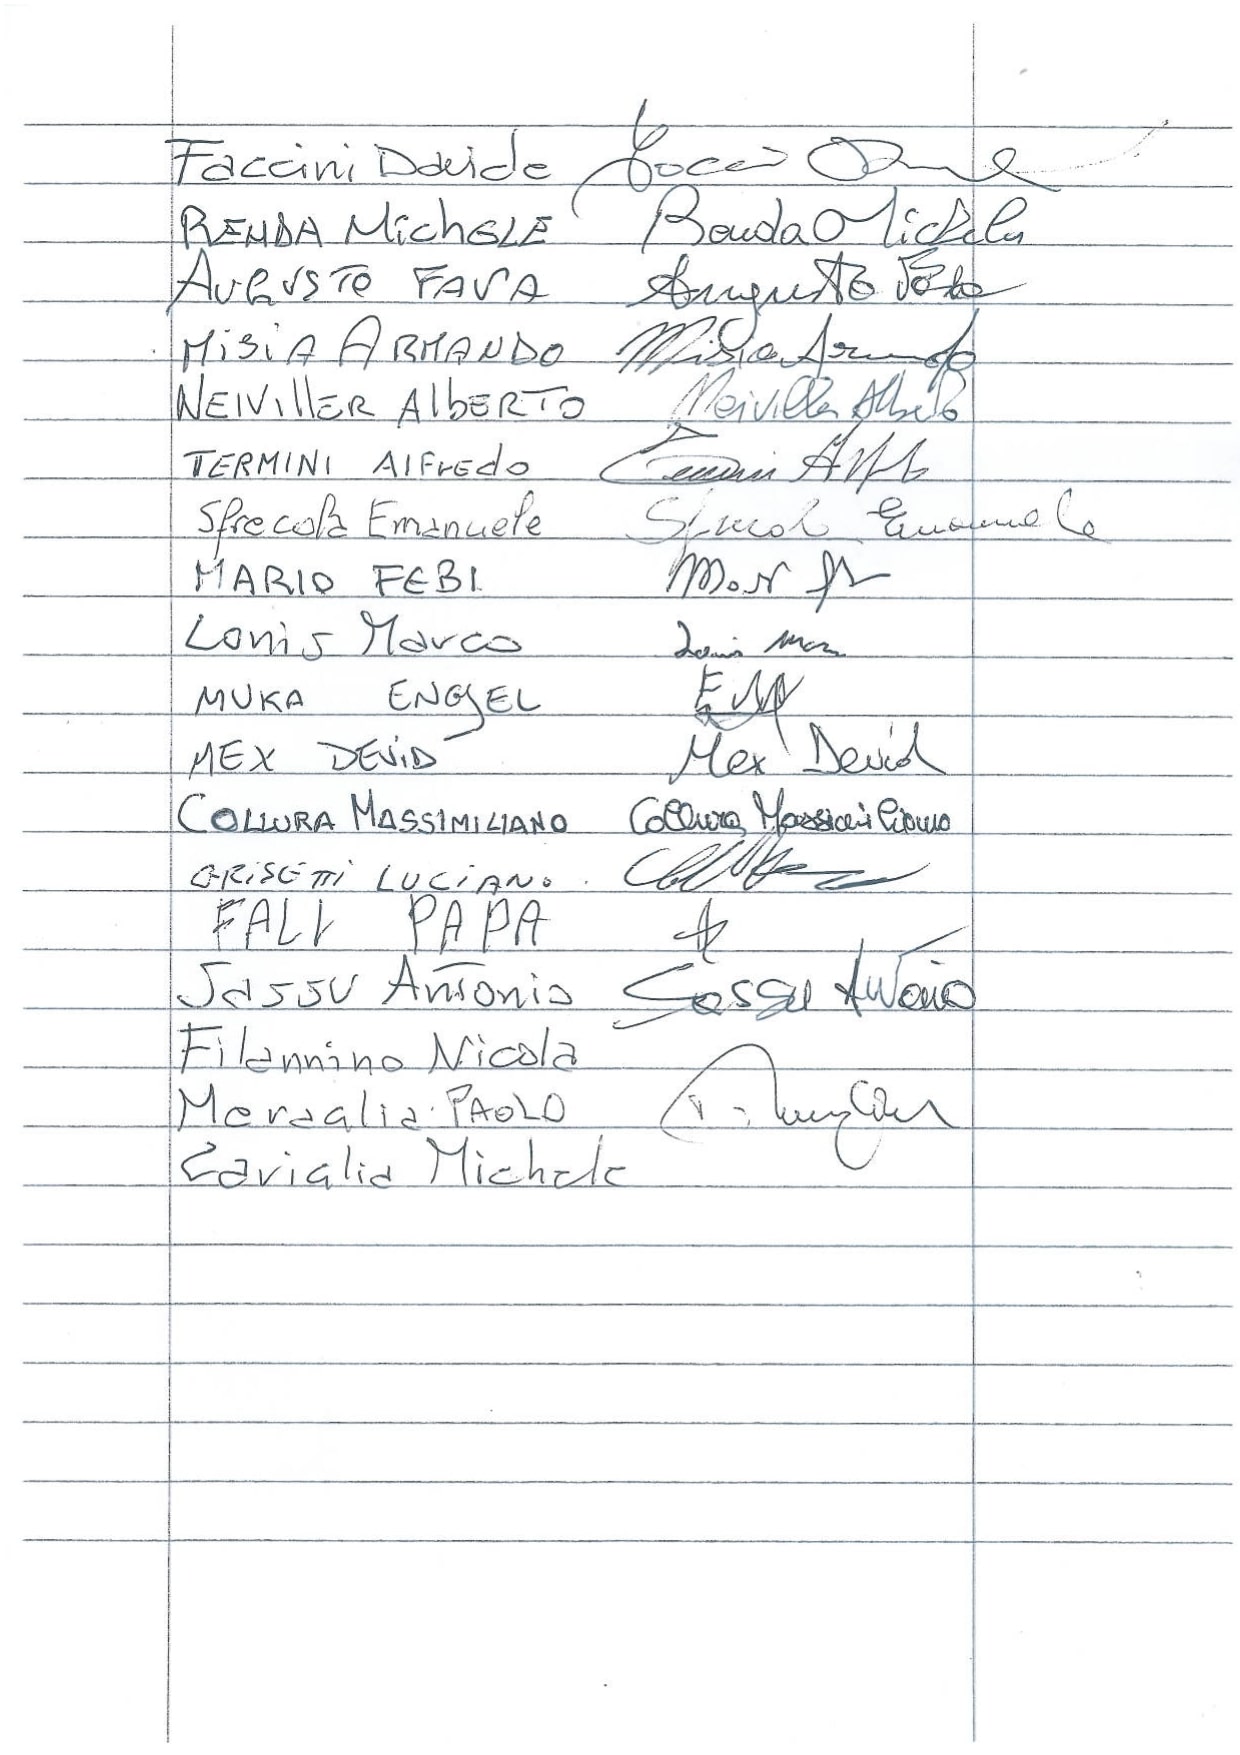 Faccini Davide
RENDA MichELE Renda Michele
AUGUSTO FAVA Augusto Fava
MISIA ARMANDO Misia Armando
NEIVIllER AlbERTO Neiviller Alberto
TERMINI AlFredo
Sfrecola Emanuele Sfrecola Emanuele
MARIO FEBI
Lonis Marco Lonis
MUKA ENGJEL
MEX DEViD Mex Devid
COLLURA MASSIMILIANO Collura Massimiliano
GRISETTI LUCIANO.
FALL PAPA
Sassu Antonio Sassu Antonio
Filannino Nicola
Meraglia PAOLO
Caviglia Michele